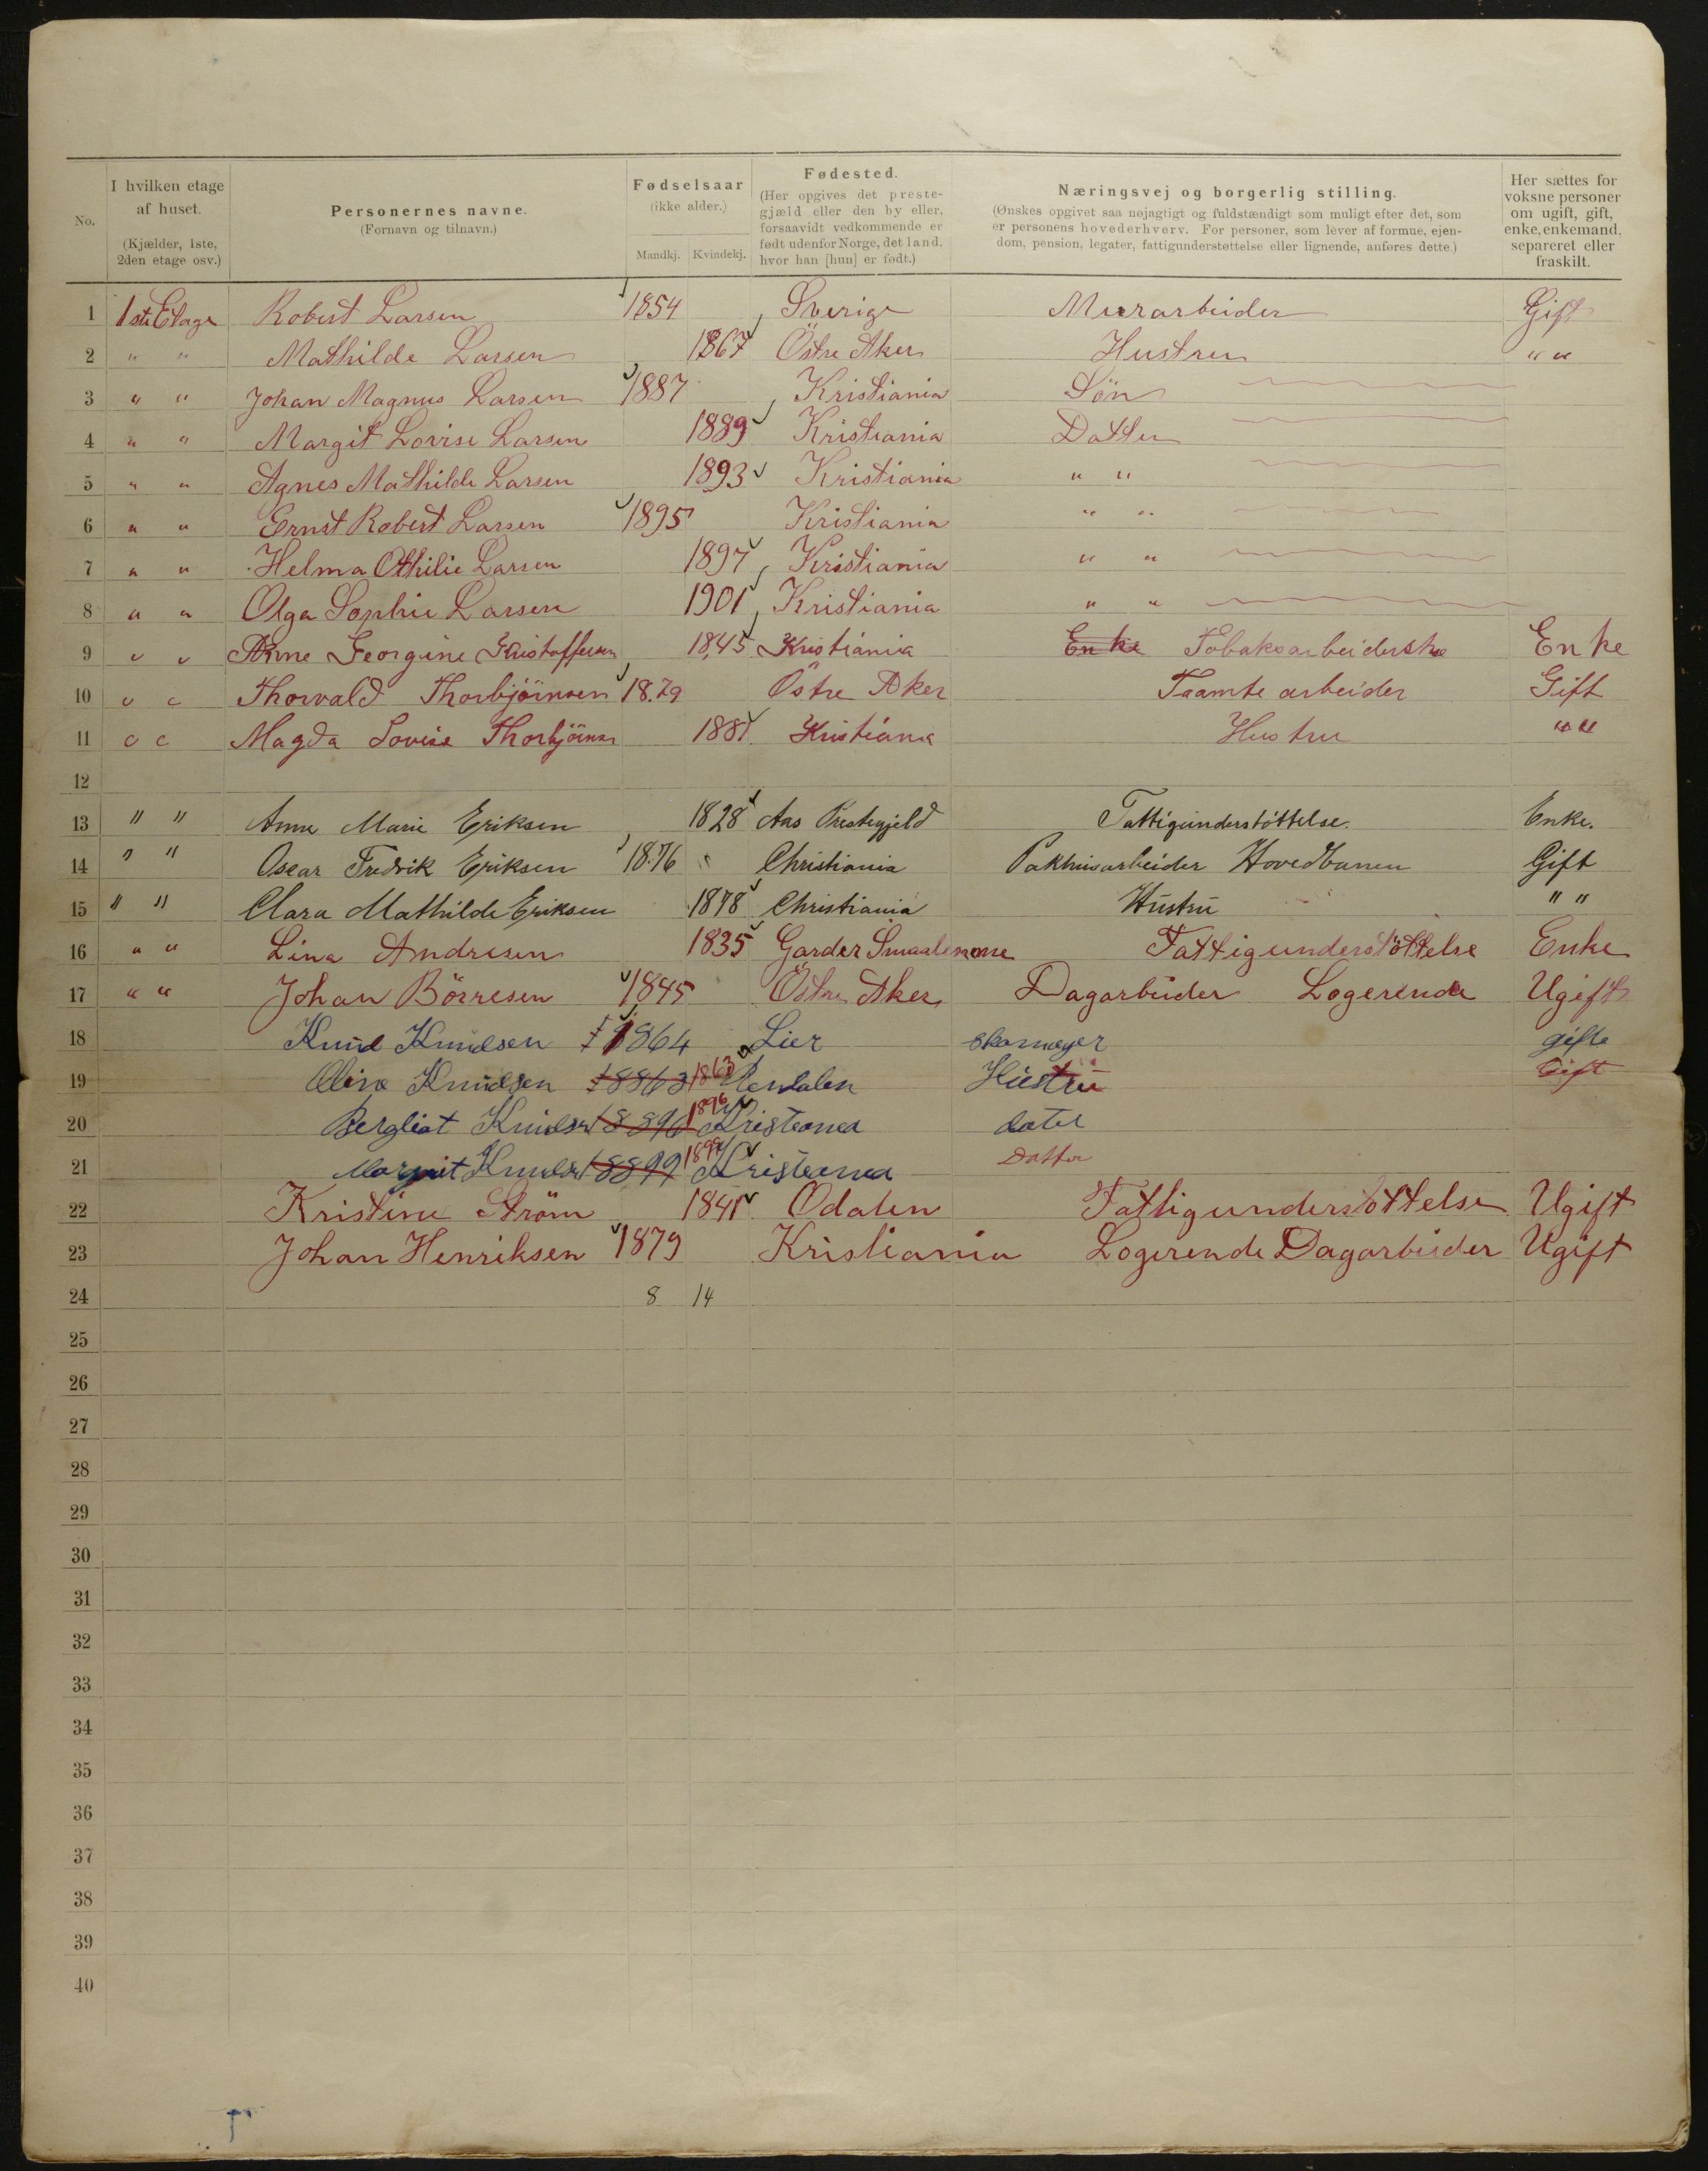 No. | I hvilken etage af huset. (Kjælder, 1ste, 2den etage osv.) | Personernes navne. (Fornavn og tilnavn.) | Fødselsaar (ikke alder.) Mandkj. Kvindekj. | Fødested. (Her opgives det prestegjæld eller den by eller, forsaavidt vedkommende er født udenfor Norge, det land, hvor han [hun] er født.) | Næringsvej og borgerlig stilling. (Ønskes opgivet saa nøjagtigt og fuldstændigt som muligt efter det, som er personens hovederhverv. For personer, som lever af formue, ejendom, pension, legater, fattigunderstøttelse eller lignende, anføres dette.) | Her sættes for voksne personer om ugift, gift, enke, enkemand, separeret eller fraskilt.
1 1ste Etage Robert Larsen 1854 Sverige Murarbeider Gift
2 " " Mathilde Larsen 1867 Östre Aker Hustru " "
3 " " Johan Magnus Larsen 1887 Kristiania Sön
4 " " Margit Lovise Larsen 1889 Kristiania Datter
5 " " Agnes Mathilde Larsen 1893 Kristiania " "
6 " " Ernst Robert Larsen 1895 Kristiania " "
7 " " Helma Othilie Larsen 1897 Kristiania " "
8 " " Olga Sophie Larsen 1901 Kristiania " "
9 " " Anne Georgine Kristoffersen 1845 Kristiania Enke Tobaksarbeiderske Enke
10 " " Thorvald Thorbjörnsen 1879 Östre Aker Taamte arbeider Gift
11 " " Magda Lovise Thorbjörns 1881 Kristiania Hustru " "
12
13 " " Anne Marie Eriksen 1828 Aas Prestegjeld Fattigunderstöttelse. Enke.
14 " " Oscar Fredrik Eriksen 1876 Christiania Pakhusarbeider Hovedbanen Gift
15 " " Clara Mathilde Eriksen 1878 Christiania Hustru " "
16 " " Lina Andresen 1835 Garder Smaalenene Fattigunderstöttelse Enke
17 " " Johan Börresen 1845 Östre Aker Dagarbeider Logerende Ugift
18 Knud Knudsen 1864 Lier skomager gifte
19 Oline Knudsen 18863 1863 Rendalen Hustru Gift
20 Bergliot Knudsen 18896 1896 Kristiania dater
21 Margrit Knudsen 18899 1899 Kristiania Datter
22 Kristine Ström 1841 Odalen Fattigunderstöttelse Ugift
23 Johan Henriksen 1879 Kristiania Logerende Dagarbeider Ugift
24 8 14
25
26
27
28
29
30
31
32
33
34
35
36
37
38
39
40